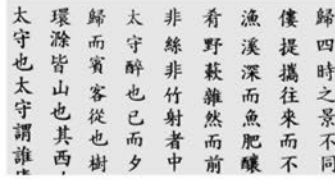 歸四時之景不同
僂提攜往來而不
漁溪深而魚肥釀
肴野蔌雜然而前
非絲非竹射者中
太守醉也已而夕
歸而賓客從也樹
環滁皆山也其西
太守也太守謂誰